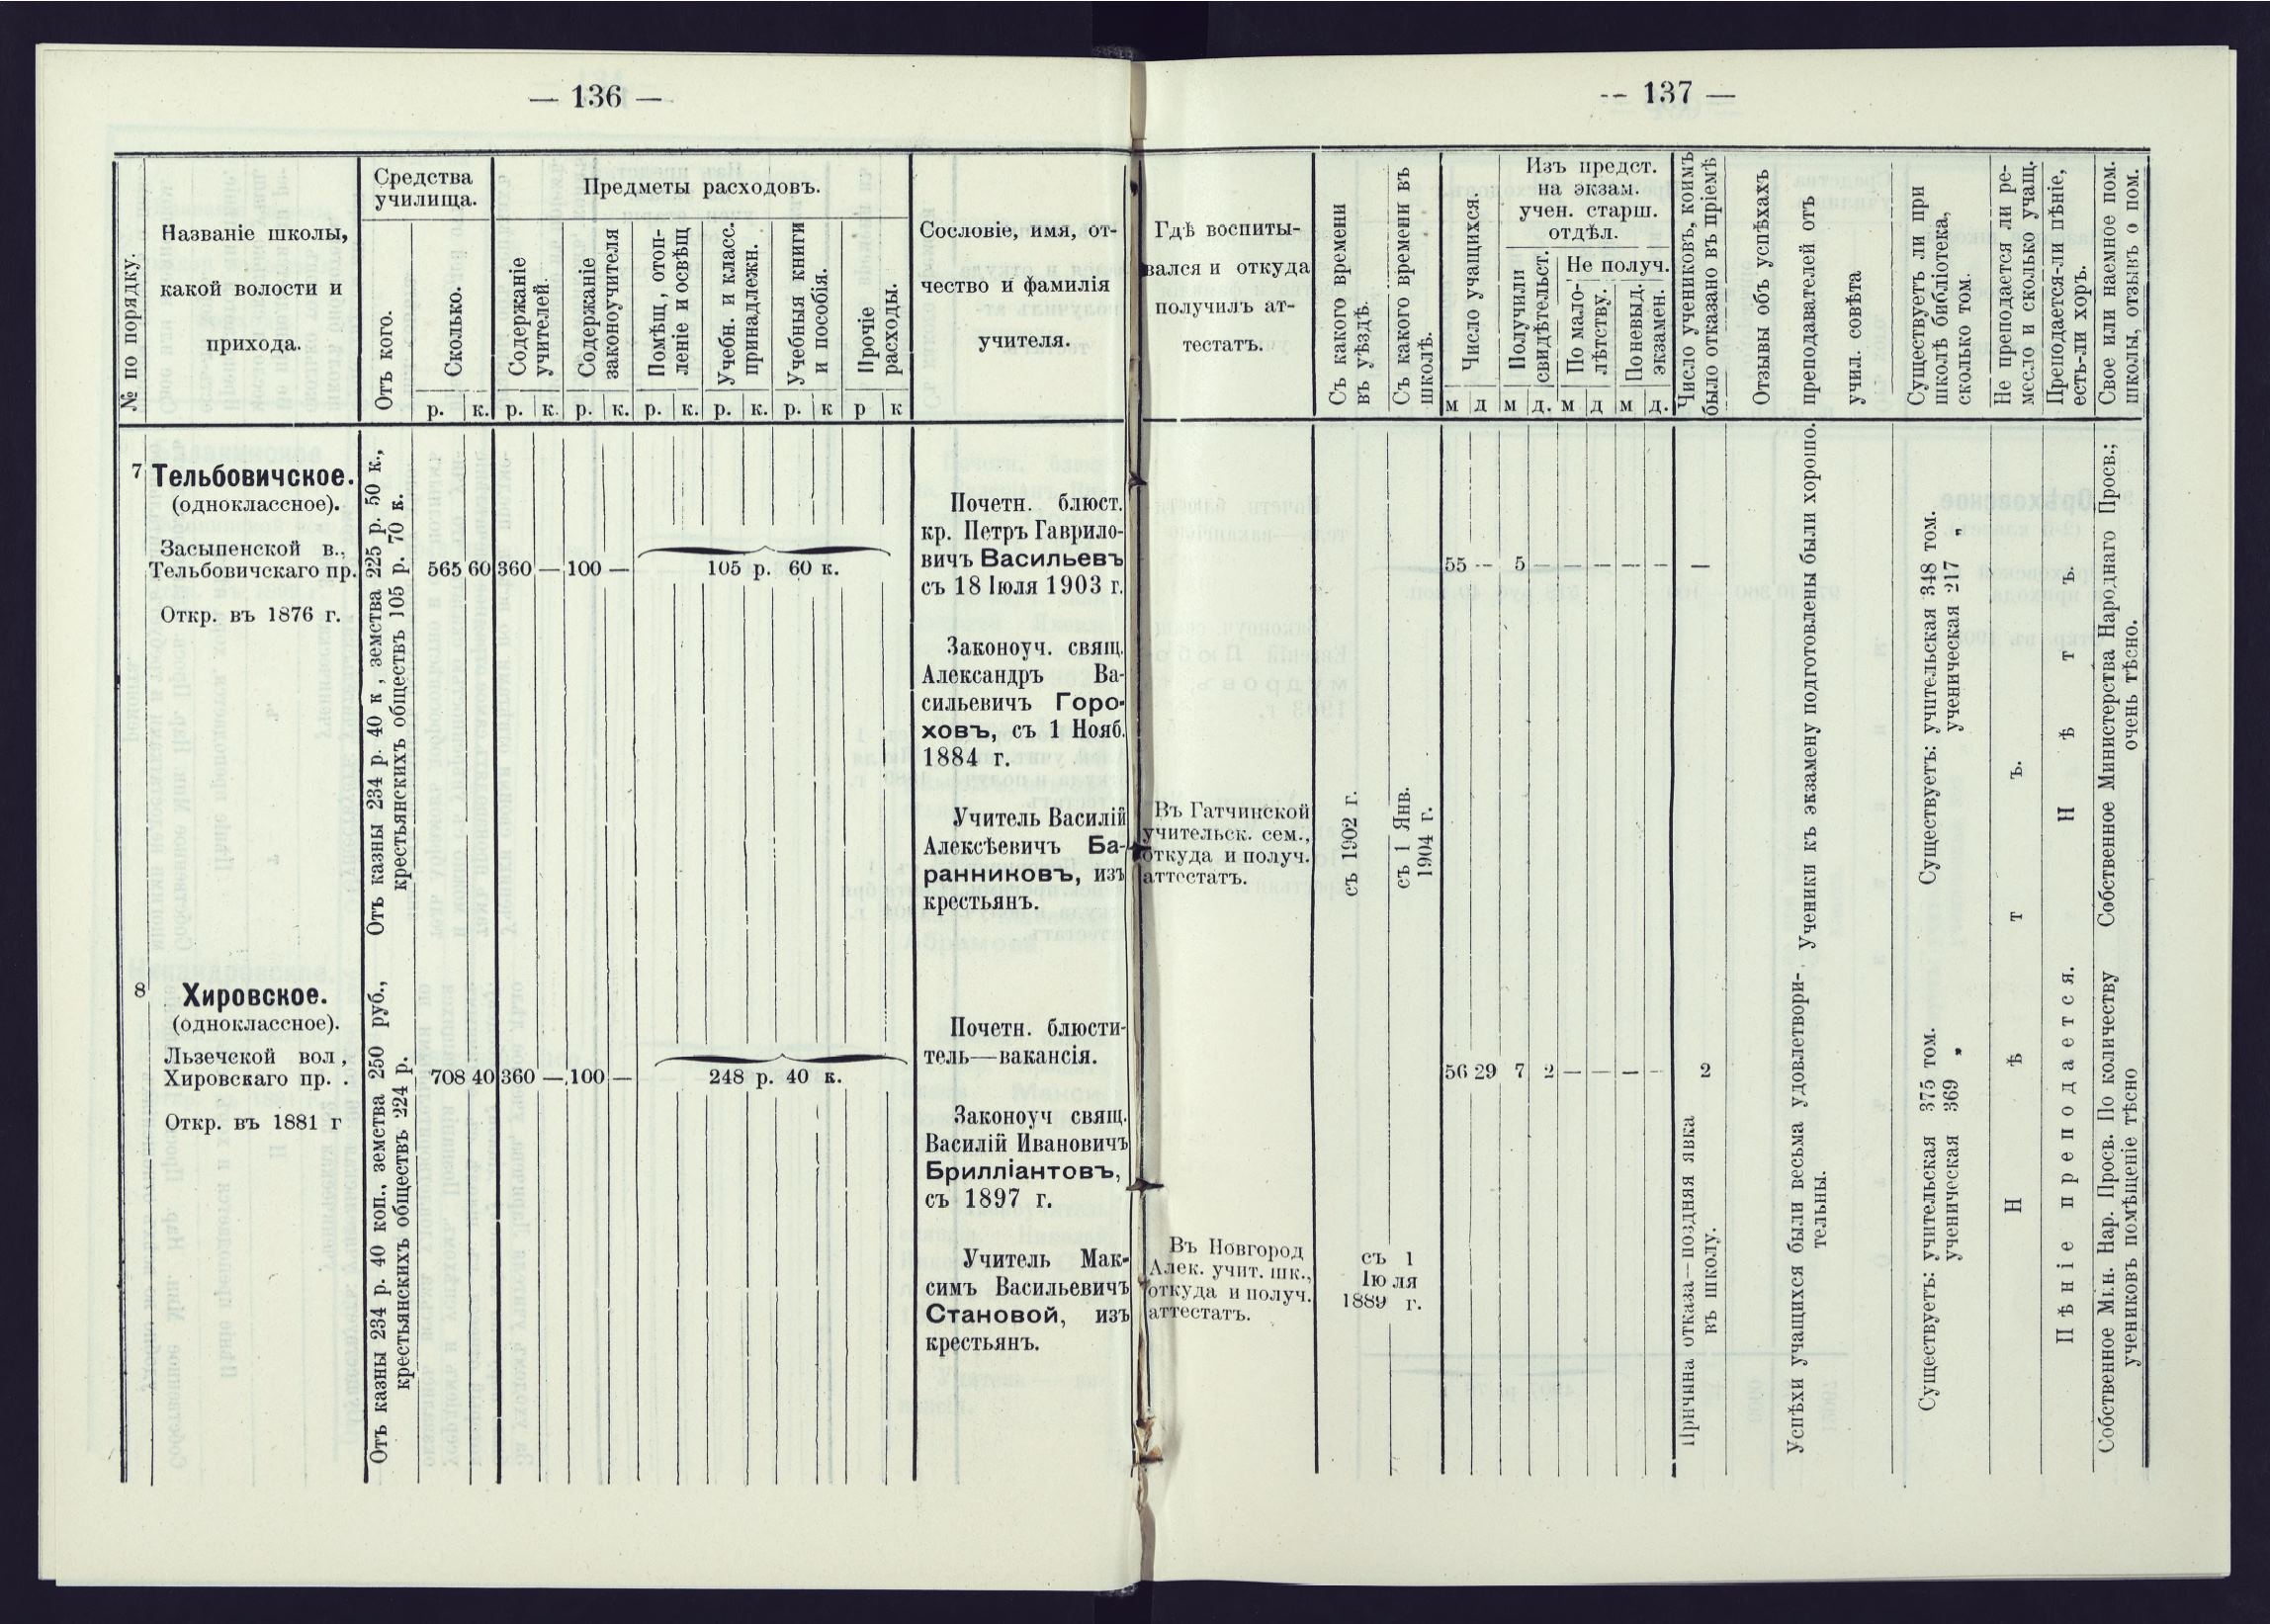 — 136 —
№ по порядку.
Названіе школы,
какой волости и
прихода.
Средства
училища.
Отъ кого.
Сколько.
р. к.
Предметы расходовъ.
Содержаніе
учителей.
р. к.
Содержаніе
законоучителя
р. к.
Помѣщ, отоп-
леніе и освѣщ
р. к.
Учебн. и класс.
принадлежн.
р. к.
Учебныя книги
и пособія.
р. к
Прочіе
расходы.
р к
Сословіе, имя, от-
чество и фамилія
учителя.
7
Тельбовичское.
(одноклассное).
Засыпенской в.,
Тельбовичскаго пр.
Откр. въ 1876 г.
Отъ казны 234 р. 40 к , земства 225 р. 50 к.,
крестьянскихъ обществъ 105 р. 70 к.
565 60 360 — 100 — 105 р. 60 к.
Почетн. блюст.
кр. Петръ Гаврило-
вичъ Васильевъ
съ 18 Іюля 1903 г.
Законоуч. свящ.
Александръ Ва-
сильевичъ Горо-
ховъ, съ 1 Нояб.
1884 г.
Учитель Василій
Алексѣевичъ Ба-
ранниковъ, изъ
крестьянъ.
8
Хировское.
(одноклассное).
Льзечской вол ,
Хировскаго пр. .
Откр. въ 1881 г
Отъ казны 234 р. 40 коп., земства 250 руб.,
крестьянскихъ обществъ 224 р.
708 40 360 — 100 — 248 р. 40 к.
Почетн. блюсти-
тель—вакансія.
Законоуч свящ.
Василій Ивановичъ
Брилліантовъ,
съ 1897 г.
Учитель Мак-
симъ Васильевичъ
Становой, изъ
крестьянъ.
-- 137 —
Гдѣ воспиты-
вался и откуда
получилъ ат-
тестатъ.
Съ какого времени
въ уѣздѣ.
Съ какого времени въ
школѣ.
Число учащихся.
м д
Изъ предст.
на экзам.
учен. старш.
отдѣл.
Получили
свидѣтельст.
м д.
Не получ.
По мало-
лѣтству.
м д
По невыд.
экзамен.
м д.
Число учениковъ, коимъ
было отказано въ пріемѣ
Отзывы объ успѣхахъ
преподавателей отъ
учил. совѣта
Существуетъ ли при
школѣ библіотека,
сколько том.
Не преподается ли ре-
месло и сколько учащ.
Преподается-ли пѣніе,
есть-ли хоръ.
Свое или наемное пом.
школы, отзывъ о пом.
Въ Гатчинской
учительск. сем.,
откуда и получ.
аттестатъ.
съ 1902 г.
съ 1 Янв.
1904 г.
55 -- 5 — — — — — —
Ученики къ экзамену подготовлены были хорошо.
Существуетъ: учительская 348 том.
ученическая 217 „
Н ѣ т ъ.
Н ѣ т ъ.
Собственное Министерства Народнаго Просв.;
очень тѣсно.
Въ Новгород
Алек. учит. шк.,
откуда и получ.
аттестатъ.
съ 1
Іюля
1889 г.
56 29 7 2 — — — — 2
Причина отказа—поздняя явка
въ школу.
Успѣхи учащихся были весьма удовлетвори-
тельны.
Существуетъ: учительская 375 том.
ученическая 369 „
Пѣніе преподается.
Собственное Мин. Нар. Просв. По количеству
учениковъ помѣщеніе тѣсно